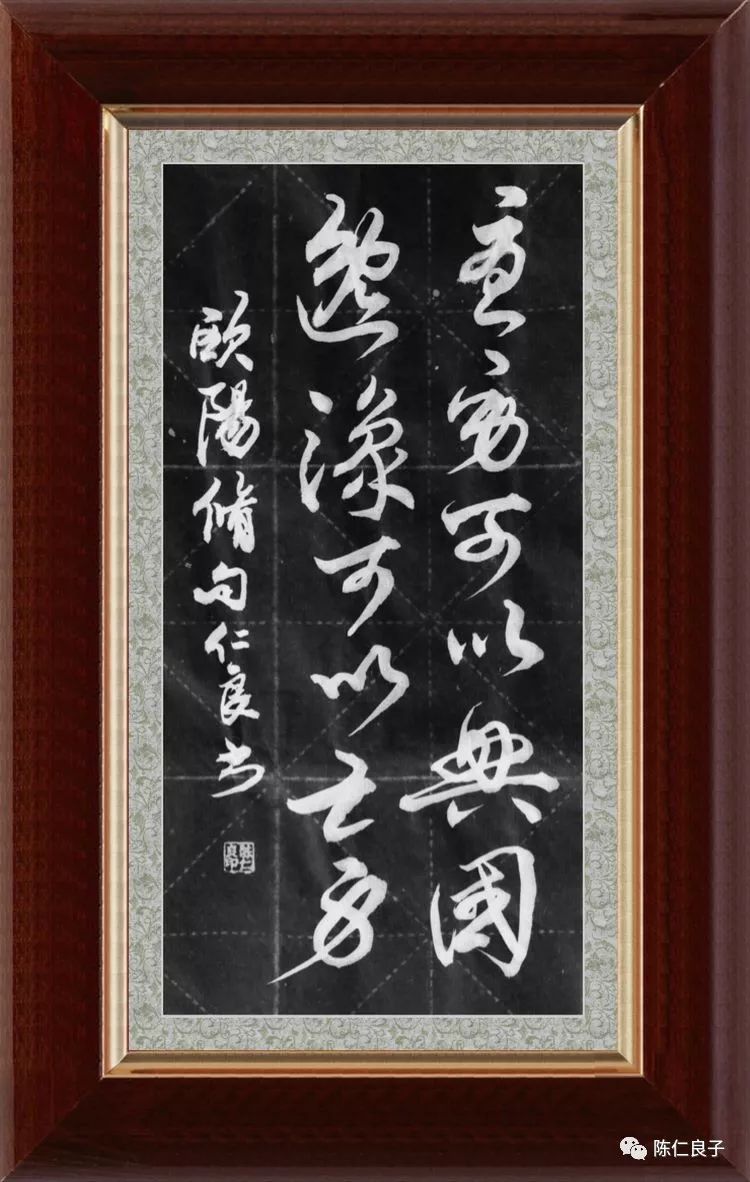 憂勞可以興國
逸豫可以亡身
歐陽脩句仁良书
陈仁良子